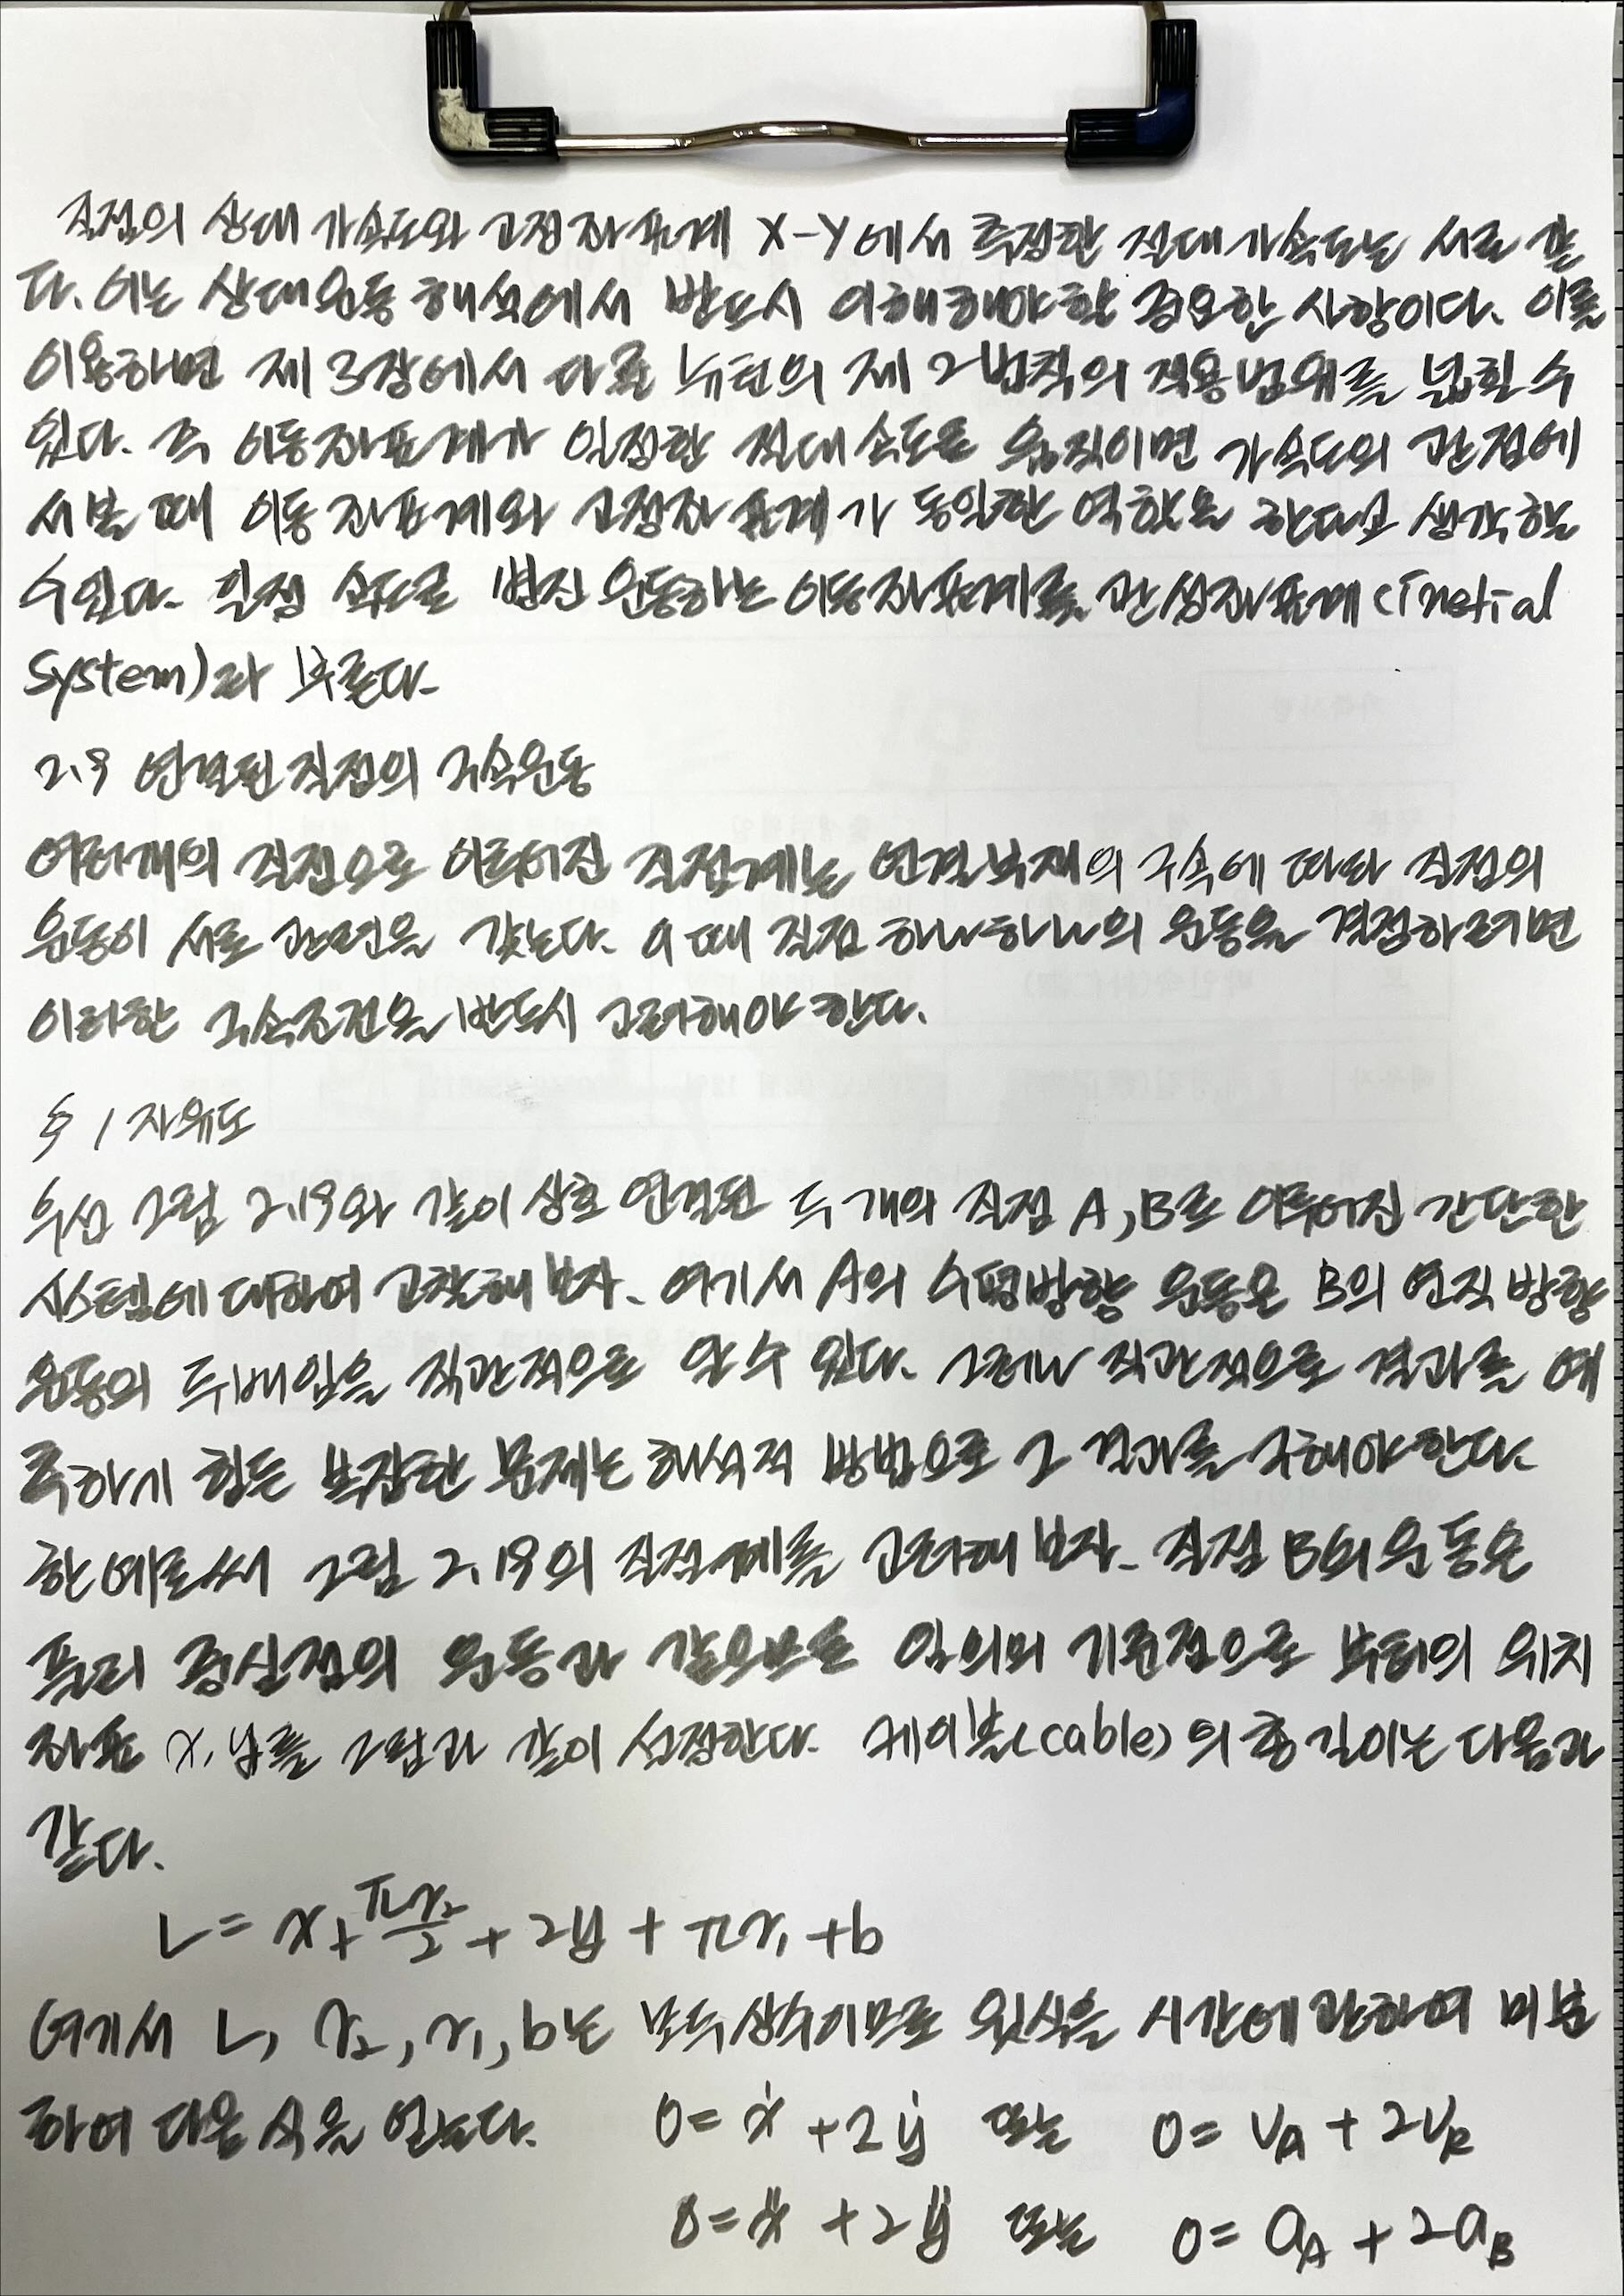 질점의 상대 가속도와 고정좌표계 X-Y에서 측정한 절대가속도는 서로 같
다. 이는 상대운동 해석에서 반드시 이해해야할 중요한 사항이다. 이를
이용하면 제 3장에서 다룰 뉴턴의 제 2법칙의 적용범위를 넓힐 수
있다. 즉 이동좌표계가 일정한 절대속도로 움직이면 가속도의 관점에
서 볼 때 이동좌표계와 고정좌표계가 동일한 역할을 한다고 생각할
수 있다. 일정 속도로 병진 운동하는 이동좌표계를 관성좌표계 (inetial
system)라 부른다.
2.9 연결된 질점의 구속운동
여러개의 질점으로 이루어진 질점계는 연결부재의 구속에 따라 질점의
운동이 서로 관련을 갖는다. 이 때 질점 하나하나의 운동을 결정하려면
이러한 구속조건을 반드시 고려해야 한다.
§ 1 자유도
우선 그림 2.19와 같이 상호 연결된 두 개의 질점 A, B로 이루어진 간단한
시스템에 대하여 고찰해 보자. 여기서 A의 수평방향 운동은 B의 연직 방향
운동의 두배임을 직관적으로 알 수 있다. 그러나 직관적으로 결과를 예
측하기 힘든 복잡한 문제는 해석적 방법으로 그 결과를 구해야 한다.
한 예로써 그림 2.19의 질점계를 고려해 보자. 질점 B의 운동은
풀리 중심점의 운동과 같으므로 임의의 기준점으로 부터의 위치
좌표 x, y를 그림과 같이 설정한다. 케이블(cable)의 총 길이는 다음과
같다.
L = x + πr₂/2 + 2y + πr₁ + b
여기서 L, r₂, r₁, b는 모두 상수이므로 윗식을 시간에 관하여 미분
하여 다음 식을 얻는다. 0 = ẋ + 2ẏ 또는 0 = v_A + 2v_B
0 = ẍ + 2ÿ 또는 0 = a_A + 2a_B